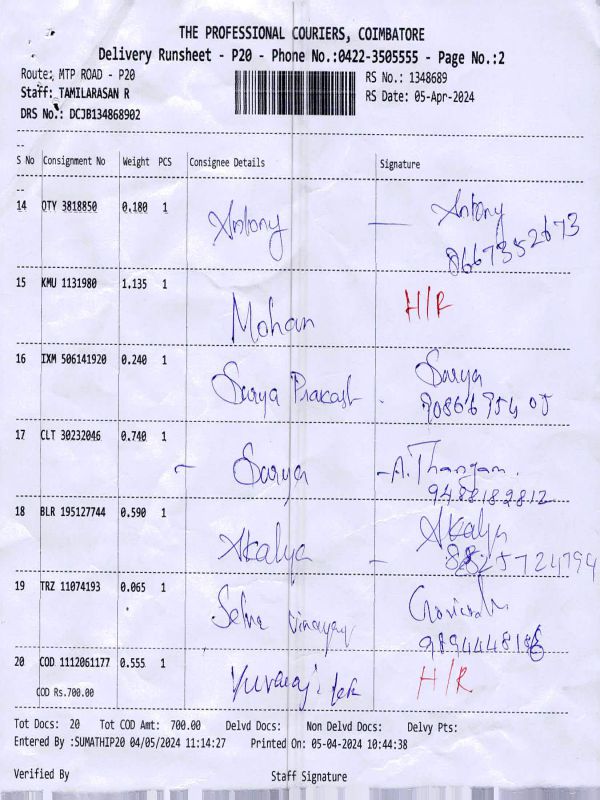 THE PROFESSIONAL COURIERS, COIMBATORE
Delivery Runsheet - P20 - Phone No.:0422-3505555 - Page No.:2
Route: MTP ROAD - P20 RS No.: 1348689
Staff: TAMILARASAN R RS Date: 05-Apr-2024
DRS No.: DCJB134868902
S No Consignment No Weight PCS Consignee Details Signature
14 OTY 3818850 0.180 1 Antony — Antony
8667352673
15 KMU 1131980 1.135 1 Mohan H/R
16 IXM 506141920 0.240 1 Surya Prakash . Surya
17 CLT 30232046 0.740 1 Surya - A. Thangam.
9488182812
18 BLR 195127744 0.590 1 Akalya - Akalya
19 TRZ 11074193 0.065 1 Selva Vinayag
20 COD 1112061177 0.555 1 Yuvaraj H/R
COD Rs.700.00
Tot Docs: 20 Tot COD Amt: 700.00 Delvd Docs: Non Delvd Docs: Delvy Pts:
Entered By :SUMATHIP20 04/05/2024 11:14:27 Printed On: 05-04-2024 10:44:38
Verified By Staff Signature